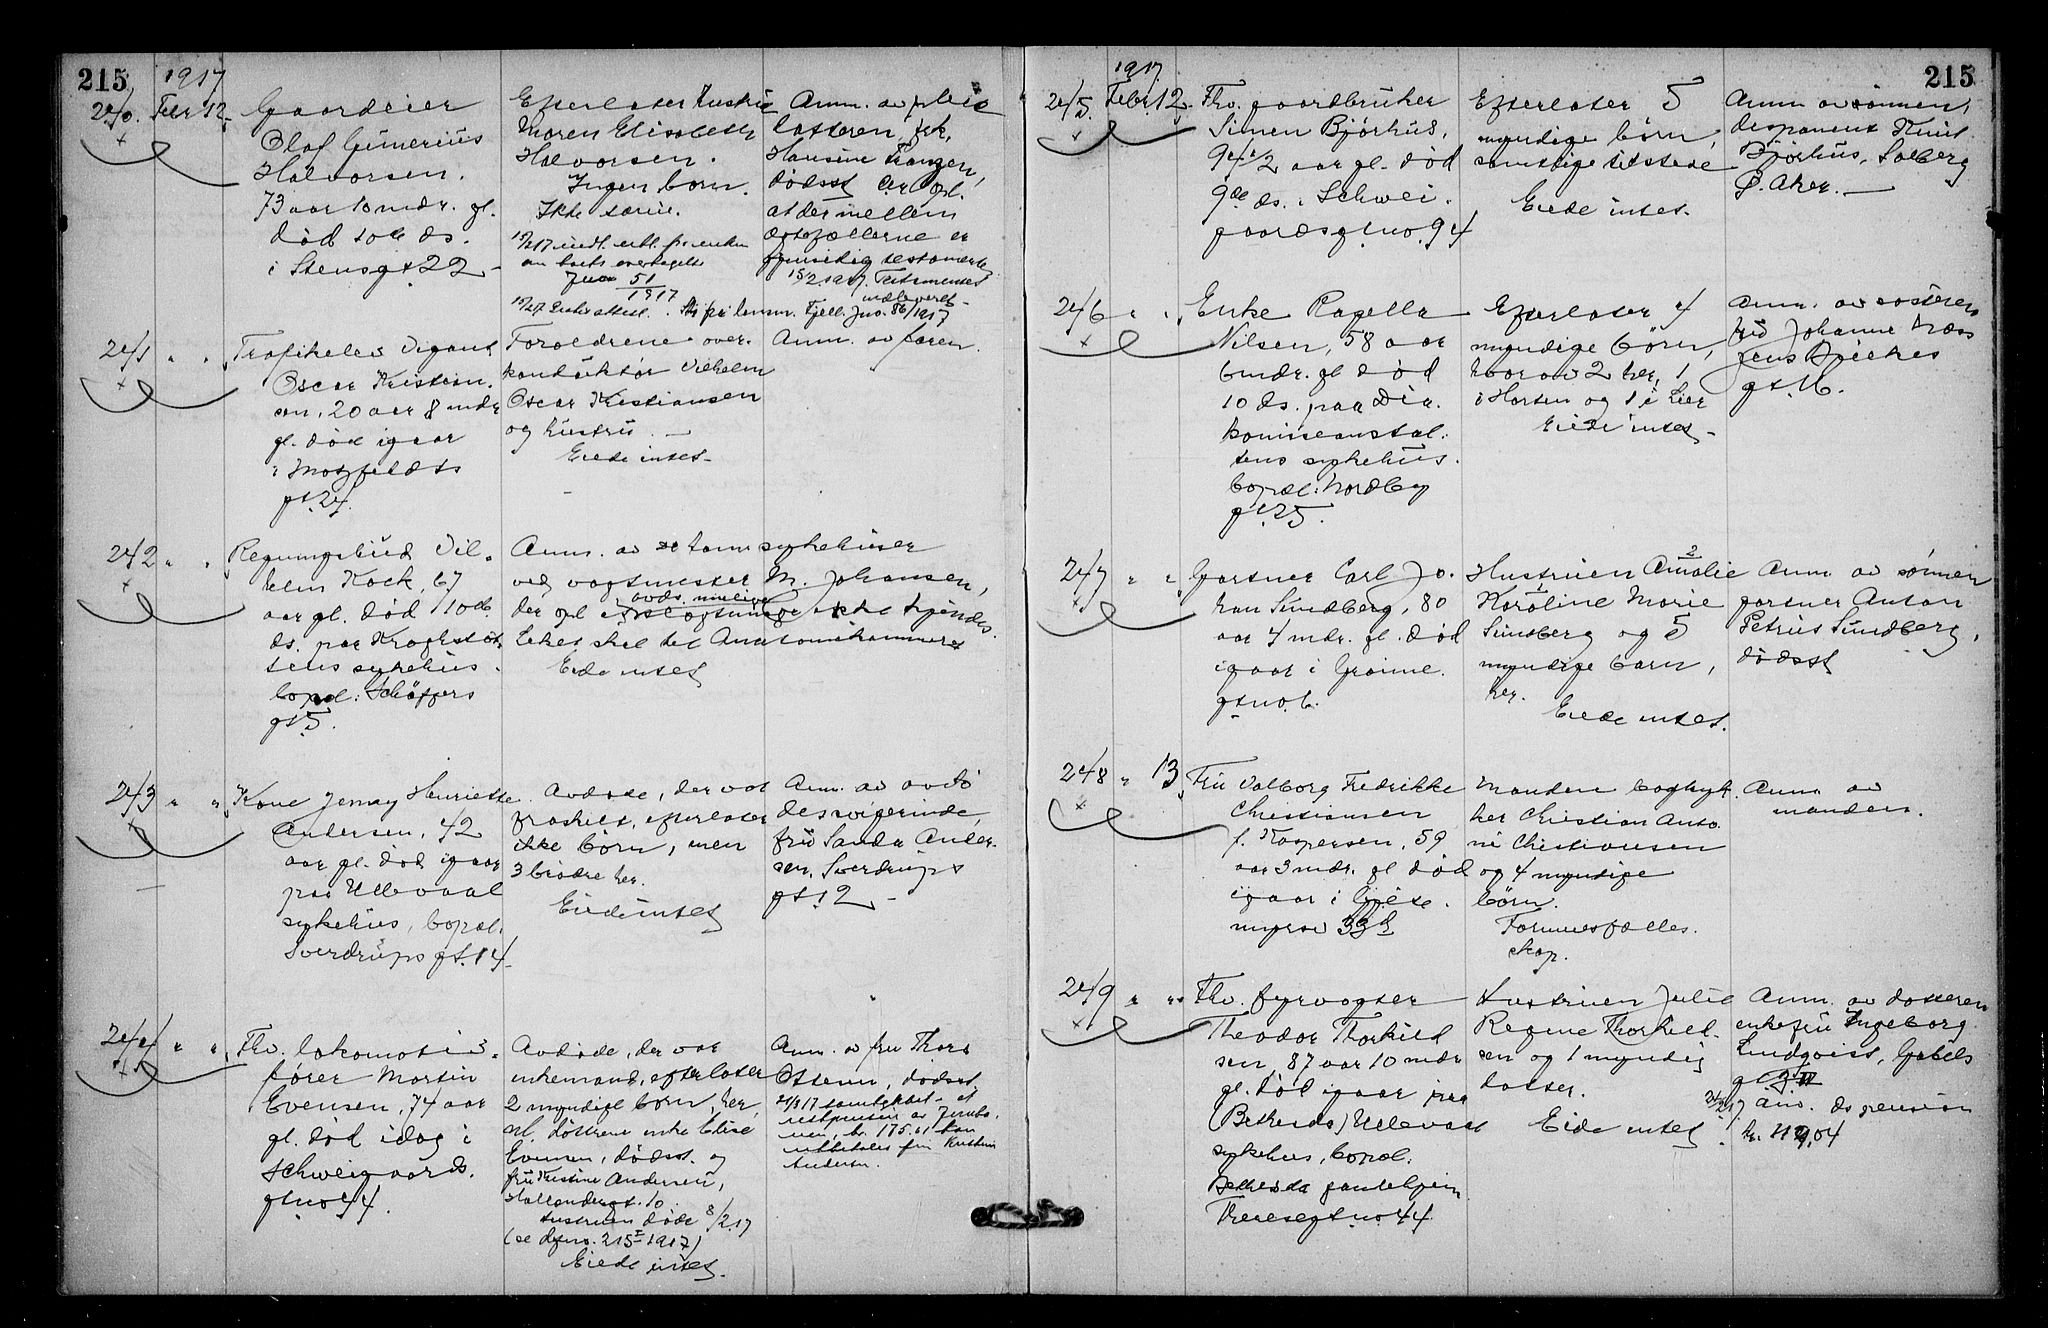 215
1917
240. Febr 12.
Gaardeier
Olaf Gunerius
Halvorsen.
73 aar 10 mdr. gl.
død 10de ds.
i Stensgt 22
Efterlater hustru
Maren Elisabeth
Halvorsen.
Ingen barn.
Ikke særeie.
om boets overtagelse
Jnr 51/1917
Anm. av pleie
datteren, frk.
Hansine
dødsst. Der opl.
at der mellem
ægtefællerne er
gjensidig testamente
15/2 1917. Testamentet
indleveret
Jno. 86/1917
241 " "
Trafikelev Vigant
Oscar Kristian-
sen, 20 aar 8 mdr
gl. død igaar
i Motzfeldts
gt. 24.
Forældrene over-
konduktør Vilhelm
Oscar Kristiansen
og hustru. —
Eiede intet.
Anm. av faren.
242 " "
Regningsbud Vil-
helm Kock, 67
aar gl. død 10de
ds. paa Krohgstøt-
tens sykehus.
bopæl: Schøffers
gt 5.
Anm. av samme sykehuset
ved vagtmester M. Johansen,
der opl. avds. nulevende
slægtninge ikke kjendes.
Liket skal til Anatomikammeret
Eiede intet
243 " "
Kone Jenny Henriette
Andersen, 42
aar gl. død igaar
paa Ullevaal
sykehus, bopæl.
Sverdrups gt. 14.
Avdøde, der var
fraskilt, efterlater
ikke børn, men
3 brødre her.
Eiede intet
Anm. av avdø
des svigerinde,
fru Sanda Ander-
sen, Sverdrups
gt. 12.
244 " "
Fhv. lokomotiv-
fører Martin
Evensen, 74 aar
gl. død idag i
Schweigaards
gt no 44.
Avdøde, der var
enkemand, efterlater
2 myndige børn, her,
nl. døttrene enke Elise
Evensen, dødsst. og
fru Kristine Andersen,
Hallendergt. 10.
Hustruen døde 8/2 17
(se dfno. 215 I 1917)
Eiede intet.
Anm. av fru Thora
dødsst.
21/3 17 samtykket at
restpension av Jernba-
nen, kr. 175.61 kan
utbetales fru Kristine
Andersen.
215
1917
245. Febr. 12.
Fhv. gaardbruker
Simen Bjørhus,
94 1/2 aar gl. død
9de ds. i Schwei-
gaardsgt no. 94
Efterlater 5
myndige børn,
samtlige tilstede
Eiede intet.
Anm. av sønnen,
disponent Knut
Bjørhus, Solberg
Ø. Aker. —
246 " "
Enke Pagella
Nilsen, 58 aar
6 mdr. gl. død
10 ds. paa Dia-
konisseanstal-
tens sykehus.
bopæl: Nordby
gt. 25.
Efterlater 4
myndige børn,
hvorav 2 her, 1
i Horten og 1 i Lier
Eiede intet.
Anm. av søsteren
fru Johanne
gt. 16.
247 " "
Gartner Carl Jo-
han Sundberg, 80
aar 4 mdr. gl. død
igaar i Grønne-
gt no. 6.
Hustruen Amalie
Karoline Marie
Sundberg og 5
myndige barn,
her.
Eiede intet.
Anm. av sønnen
gartner Anton
Petrus Sundberg,
dødsst
248 " 13.
Fru Valborg Fredrikke
Christiansen
f. Kaspersen, 59
aar 3 mdr. gl. død
igaar i Gjete-
myrsv 33
Manden bogtryk-
ker Christian Anto-
ni Christiansen
og 4 myndige
børn.
Formuesfælles-
skap.
Anm. av
manden.
249 " "
Fhv. fyrvogter
Theodor Thorkild
sen, 87 aar 10 mdr
gl. død igaar paa
(Bethesda) Ullevaal
sykehus, bopæl.
Bethesda gamlehjem
Theresegt. no 44
Hustruen Julie
Regine Thorkild-
sen og 1 myndig
datter.
Eiede intet.
Anm. av datteren
enkefru Ingeborg
Lundqvist, Gabels
gt.
pension
kr.